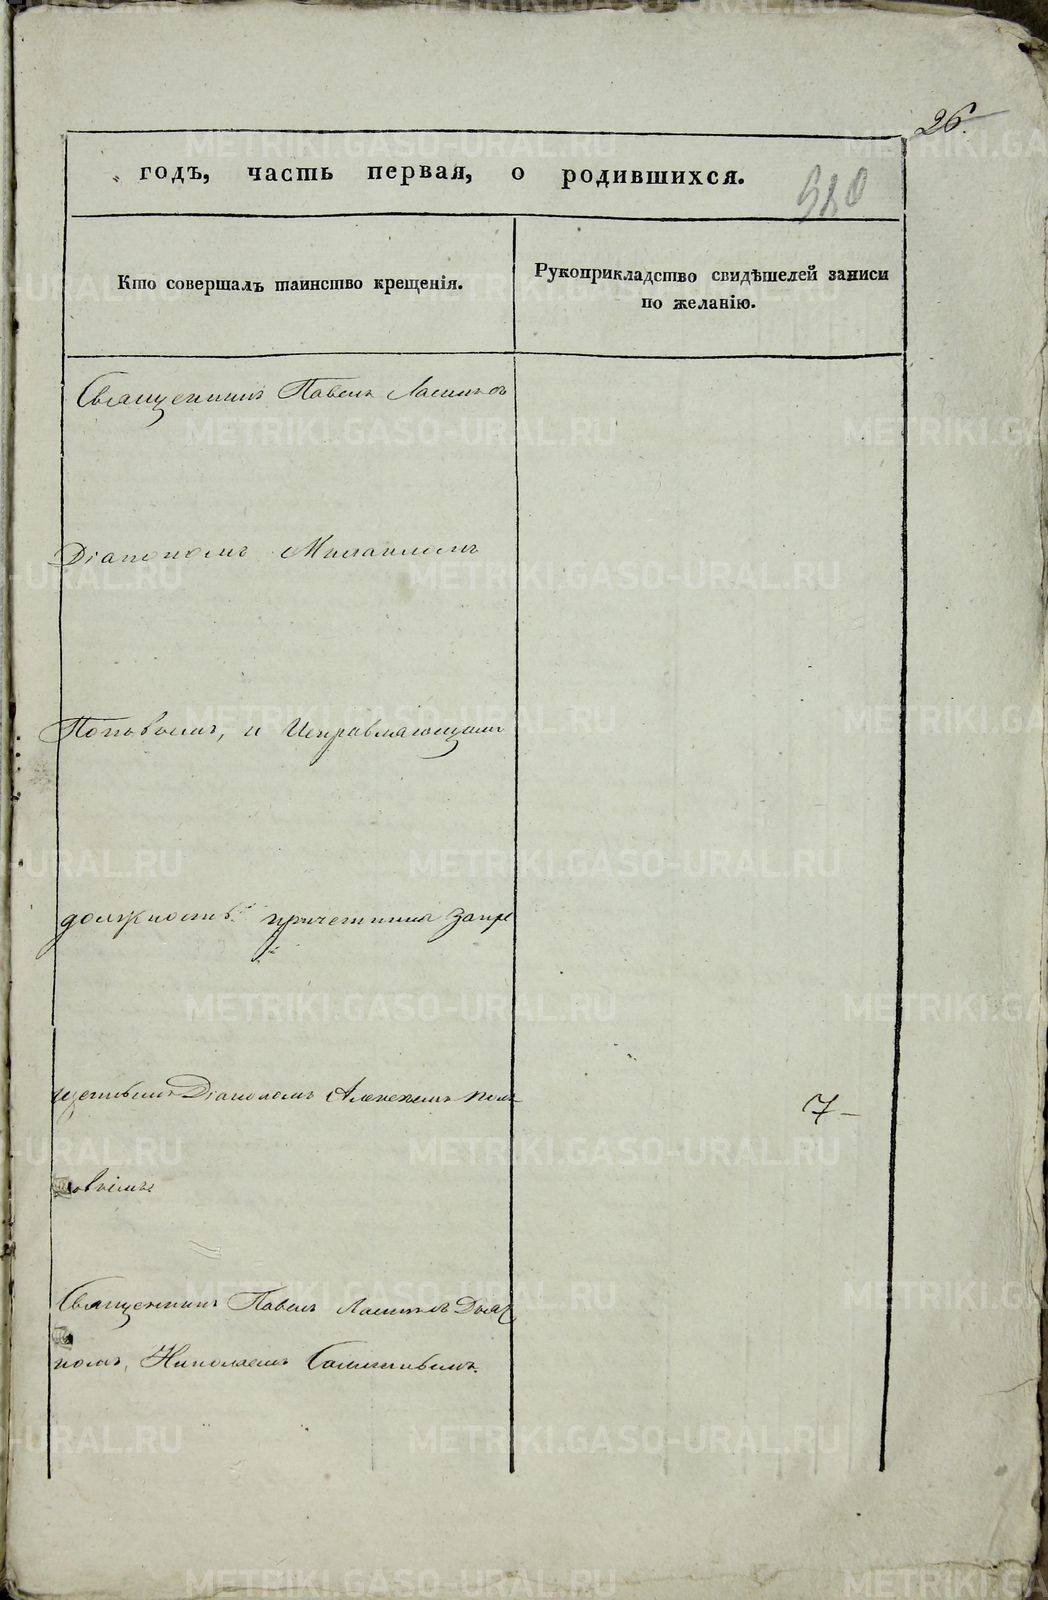 26.
годъ, часть первая, о родившихся.
980
Кто совершалъ таинство крещенія.
Рукоприкладство свидѣтелей записи
по желанію.
Священникъ Павелъ
Діакономъ Михаиломъ
Поповымъ, и Исправляющимъ
должность причетника Запре
щеннымъ Діакономъ Алексѣемъ Попо
7
овымъ
Священникъ Павелъ Діак
номъ, Николаемъ
METRIKI.GASO-URAL.RU